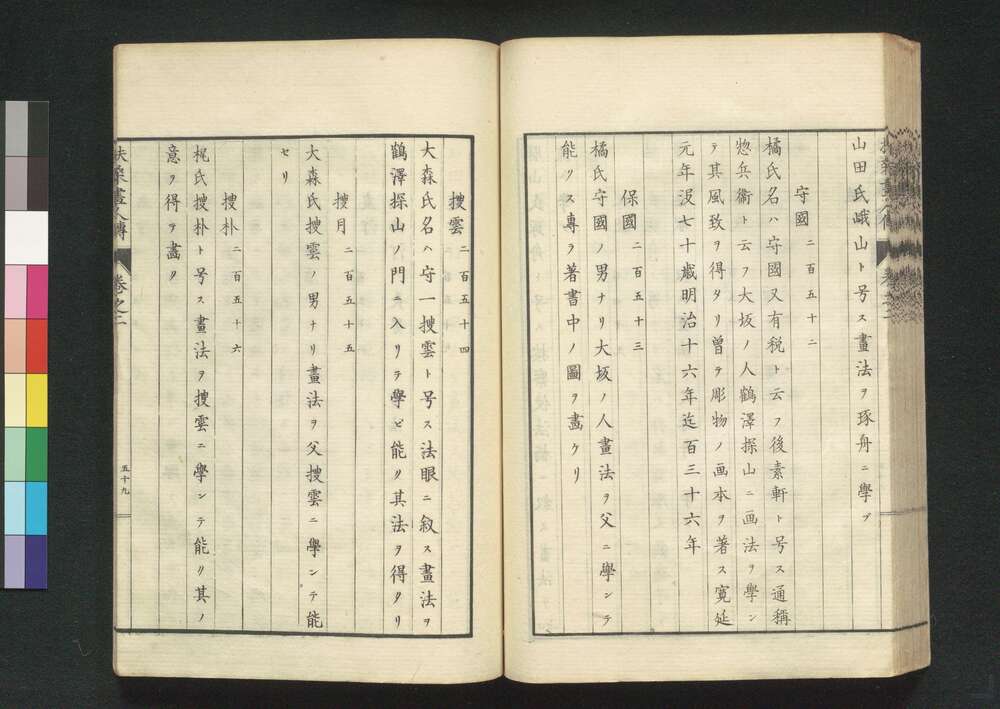 山田氏峨山ト号ス畫法ヲ琢舟ニ學ブ
守國 二百五十二
橘氏名ハ守國又有税ト云フ後素軒ト号ス通稱
惣兵衞ト云フ大坂ノ人鶴澤探山ニ画法ヲ學ン
テ其風致ヲ得タリ曽テ彫物ノ画本ヲ著ス寛延
元年没七十歳明治十六年迄百三十六年
保國 二百五十三
橘氏守國ノ男ナリ大坂ノ人畫法ヲ父ニ學ンテ
能クス專ラ著書中ノ圖ヲ畫ケリ
搜雲 二百五十四
大森氏名ハ守一搜雲ト号ス法眼ニ叙ス畫法ヲ
鶴澤探山ノ門ニ入リテ學ビ能ク其法ヲ得タリ
搜月 二百五十五
大森氏搜雲ノ男ナリ畫法ヲ父搜雲ニ學ンテ能
セリ
搜朴 二百五十六
梶氏搜朴ト号ス畫法ヲ搜雲ニ學ンテ能ク其ノ
意ヲ得テ畵ク
扶桑畫人傳 卷之二
五十九